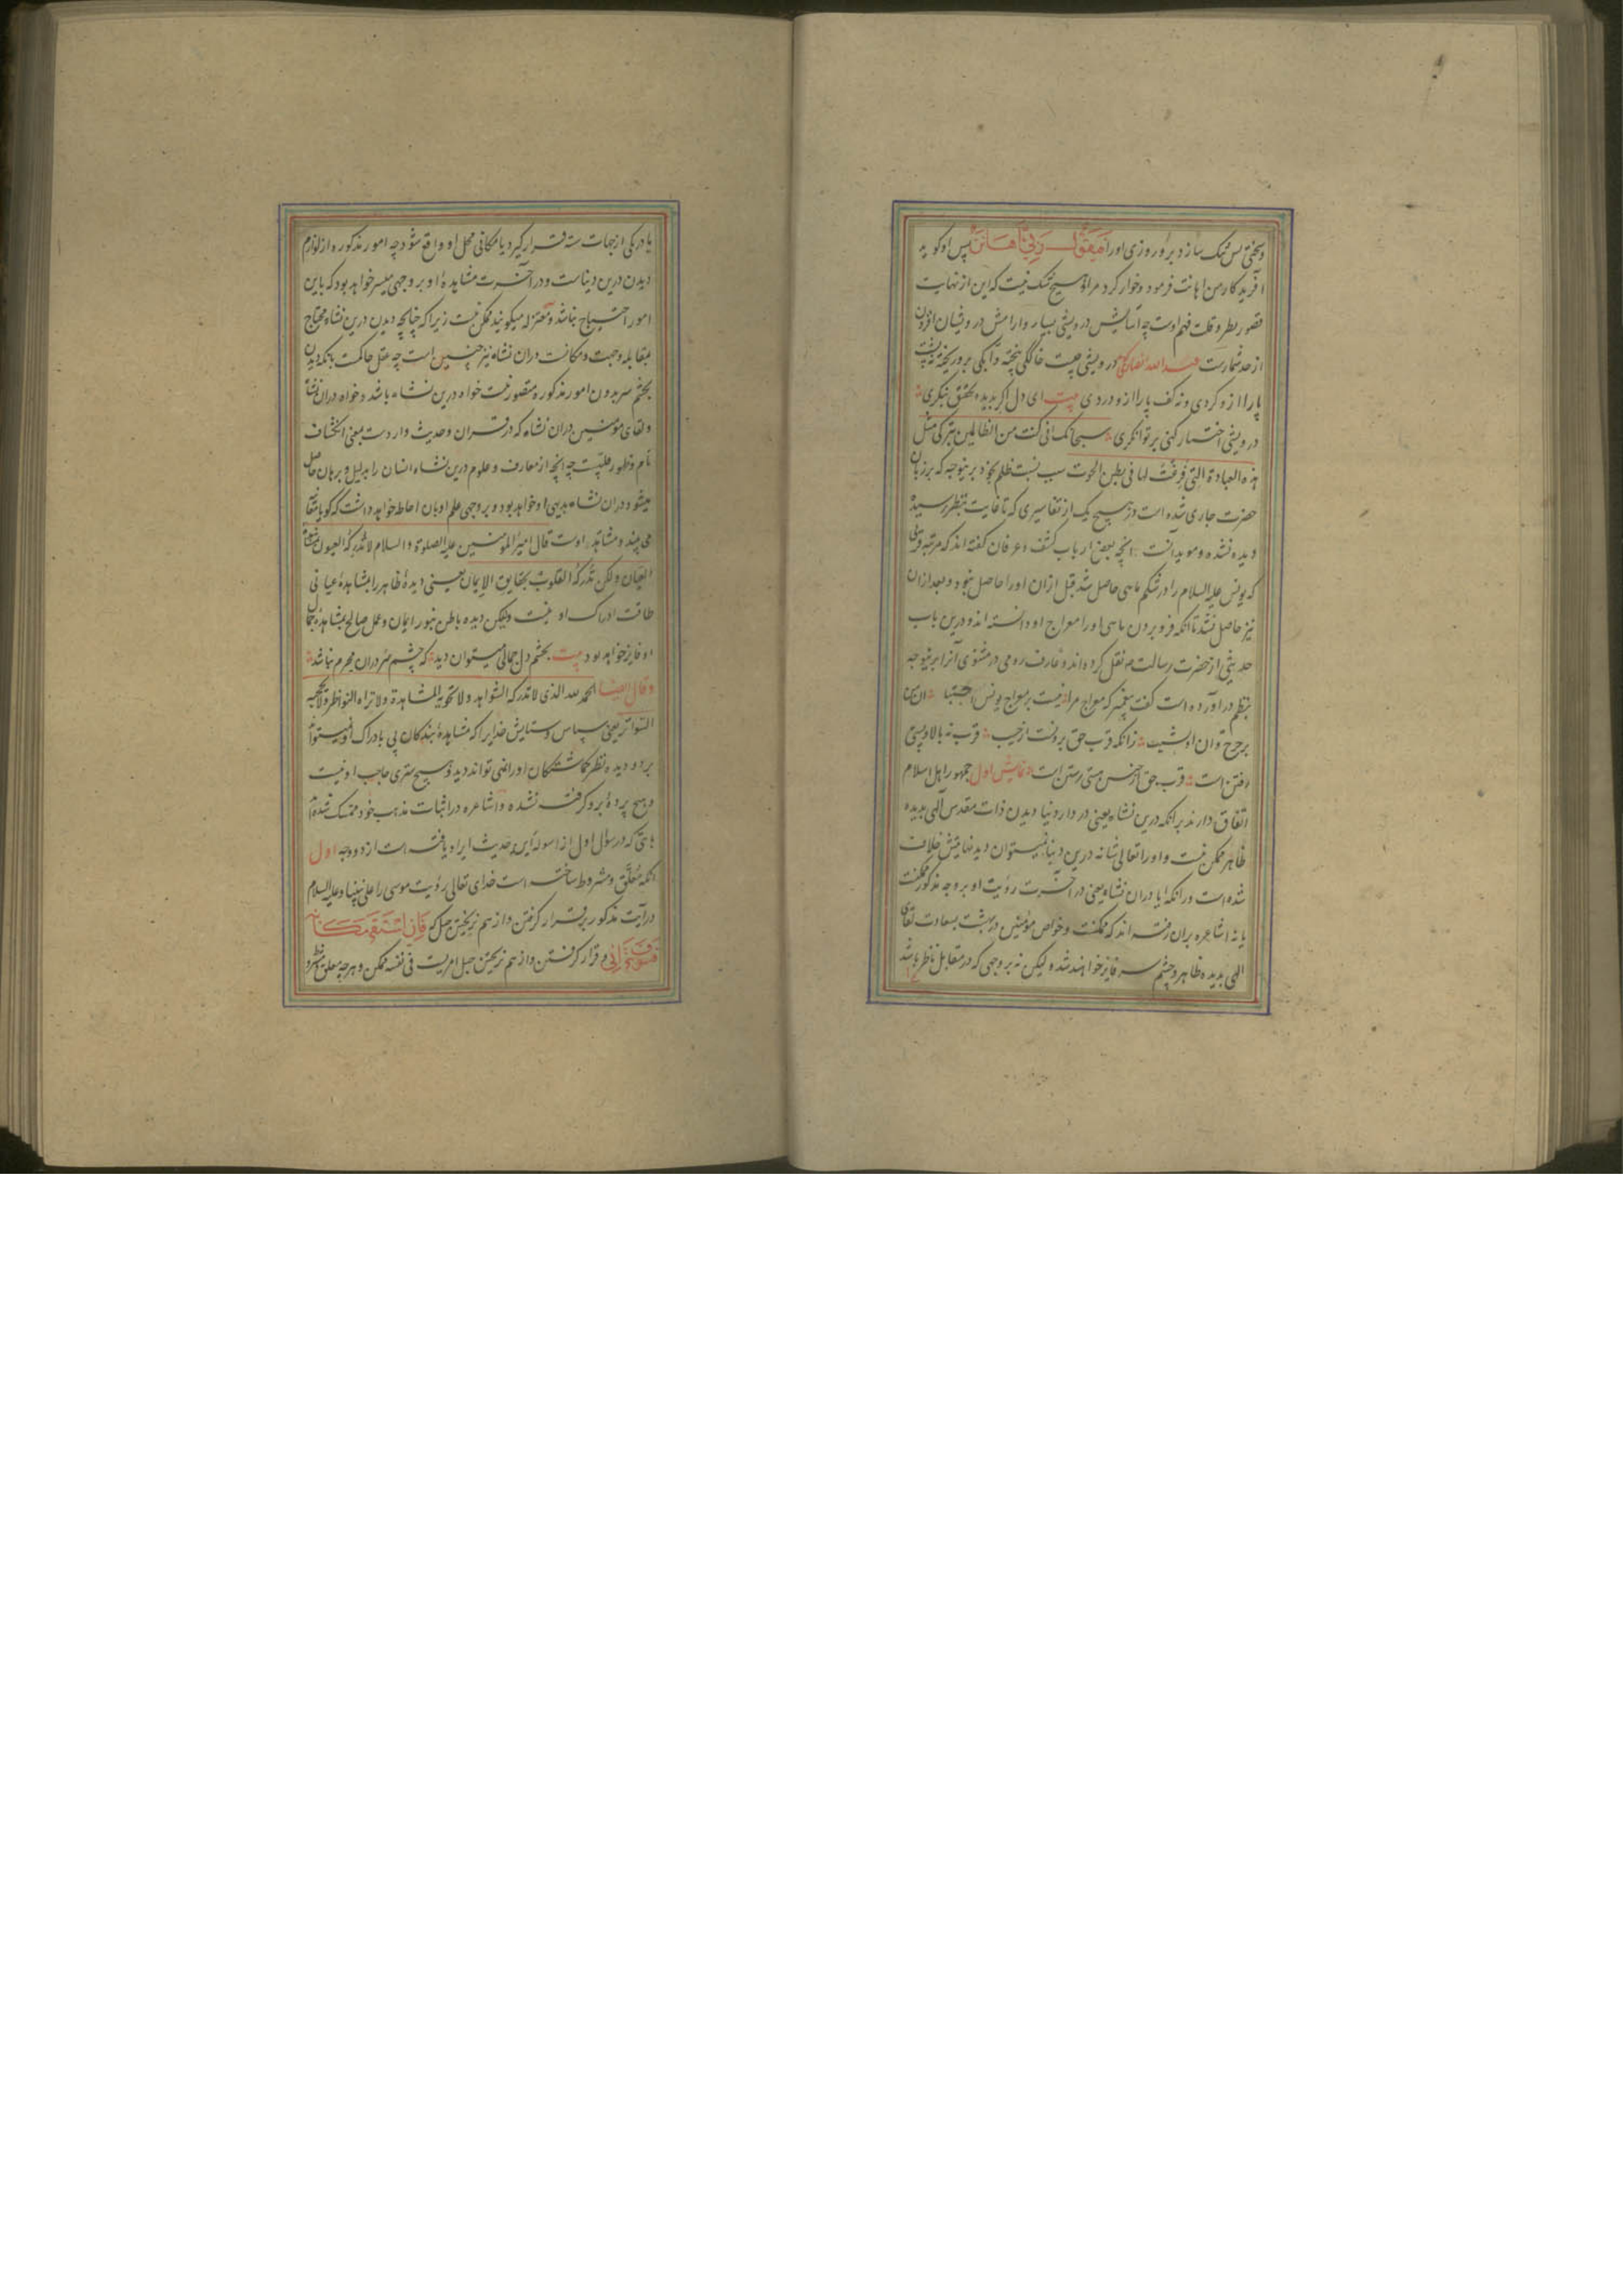 وسختی پس تنک سازد برو روزی اورا فَیَقُولُ رَبّی أَهَانَنِ پس او کوید
آفریدکار من اهانت فرمود وخوار کرد مرا و هیچ شک نیست که این از نهایت
قصور نظر و قلت فهم اوست چه آسایش درویشی بسیار و آرامش درویشان افزون
از حد شمارست درویشی چیست خاککی بیخته وآبکی برو ریخته نه پشت
پا را ازو کردی و نه کف پا را ازو دردی بیت ای دل اکر بدیده تحقیق بنکری
درویشی اختیار کنی بر توانکری سبحانک انی کنت من الظالمین بترکی مثل
هذه العبادة التی فرغت لها فی بطن الحوت سبب نسبت ظلم بخود برینوجه که بر زبان
حضرت جاری شده است در هیچ یک از تفاسیری که تا غایت بنظر رسیده
دیده نشده و موید آنست آنچه بعضی ارباب کشف و عرفان کفته اند که مرتبه قربی
که یونس علیه السلام را در شکم ماهی حاصل شد قبل ازان اورا حاصل نبود و بعد ازان
نیز حاصل نشد تا آنکه فرو بردن ماهی اورا معراج او دانسته اند و درین باب
حدیثی از حضرت رسالت م نقل کرده اند و عارف رومی در مثنوی آنرا برینوجه
بنظم در آورده است کفت پیغمبر که معراج مرا نیست بر معراج یونس اجتبا آن من
بر چرخ و آن او شیب زانکه قرب حق برونست از حسیب قرب نه بالا و پستی
رفتن است قرب حق از حبس هستی رستن است نمایش اول جمهور اهل اسلام
اتفاق دارند برانکه درین نشاه یعنی در دار دنیا دیدن ذات مقدس آلهی بدیده
ظاهر ممکن نیست و اورا تعالی شانه درین دنیا نمیتوان دید نهایتش خلافت
شده است در آنکه آیا دران نشاه یعنی در آخرت رؤیت او بر وجه مذکور ممکنست
یا نه اشاعره بران رفته اند که ممکنست و خواص مؤمنین در بهشت بسعادت لقای
الهی بدیده ظاهر و چشم سر فایز خواهند شد و لیکن نه بر وجهی که در مقابل ناظر باشد
یا در یکی از جهات سته قرار کیرد یا مکانی محل او واقع شود چه امور مذکوره از لوازم
دیدن درین دنیاست و در آخرت مشاهدهٔ او بر وجهی میسر خواهد بود که باین
امور احتیاج نباشد و معتزله میکویند ممکن نیست زیرا که چنانچه دیدن درین نشاه محتاج
بمقابله وجهت و مکانست دران نشاه نیز چنین است چه عقل حاکمست بآنکه دیدن
بچشم سر بدون امور مذکوره متصور نیست خواه درین نشاه باشد و خواه دران نشاه
و لقای مؤمنین دران نشاه که در قرآن و حدیث واردست بمعنی انکشاف
تام و ظهور علمیست چه آنچه از معارف و علوم درین نشاه انسان را بدلیل و برهان حاصل
میشود دران نشاه بدیهی او خواهد بود و بر وجهی علم او بان احاطه خواهد داشت که کویا بلقا
می بیند و مشاهد اوست قال امیر المؤمنین علیه الصلوة والسلام لا تدرکه العیون بمشاهدة
العیان ولکن تدرکه القلوب بحقایق الایمان یعنی دیدهٔ ظاهر را بمشاهدهٔ عیانی
طاقت ادراک او نیست ولیکن دیده باطن بنور ایمان و عمل صالح بمشاهدهٔ جمال
او فایز خواهد بود بیت بچشم دل جمالی میتوان دید که چشم سر دران محرم نباشد
وقال ایضا الحمد لله الذی لا تدرکه الشواهد ولا تحویه المشاهدة ولا تراه النواظر ولا تحجبه
السواتر یعنی سپاس و ستایش خدایرا که مشاهدهٔ بندکان پی بادراک او نمیتواند
برد و دیده نظر کماشتکان اورا نمی تواند دید و هیچ ستری حاجب او نیست
و هیچ پردهٔ برو کرفته نشده و اشاعره در اثبات مذهب خود متمسک شده اند
بآیتی که در سؤال اول از اسولهٔ این حدیث ایراد یافته است از دو وجه اول
آنکه معلق و مشروط ساخته است خدای تعالی رؤیت موسی را علی نبینا و علیه السلام
در آیت مذکور بر قرار کرفتن و از هم نریختن جبل که فَإِنِ اسْتَقَرَّ مَكَانَهُ
فَسَوْفَ تَرَانِي و قرار کرفتن و از هم نریختن جبل امریست فی نفسه ممکن و هرچه معلق و مشروط